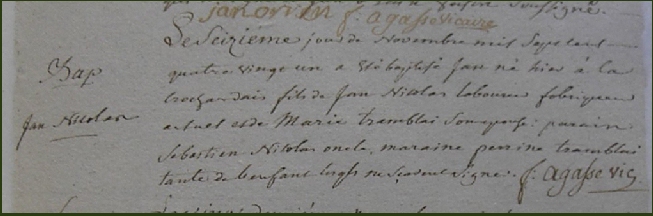 jan orvin f. agasse vicaire
Bap
jan Nicolas
Le Seizieme jour de Novembre mil Sept cent
quatre vingt un a été baptisé Jan né hier à la
fils de Jan Nicolas laboureur fabriqueur
actuel et de Marie tramblai Son epouse: parain
Sebastien Nicolas oncle, maraine perrine tramblai
tante de l'enfant ne Scavent Signer. f. agasse vic.